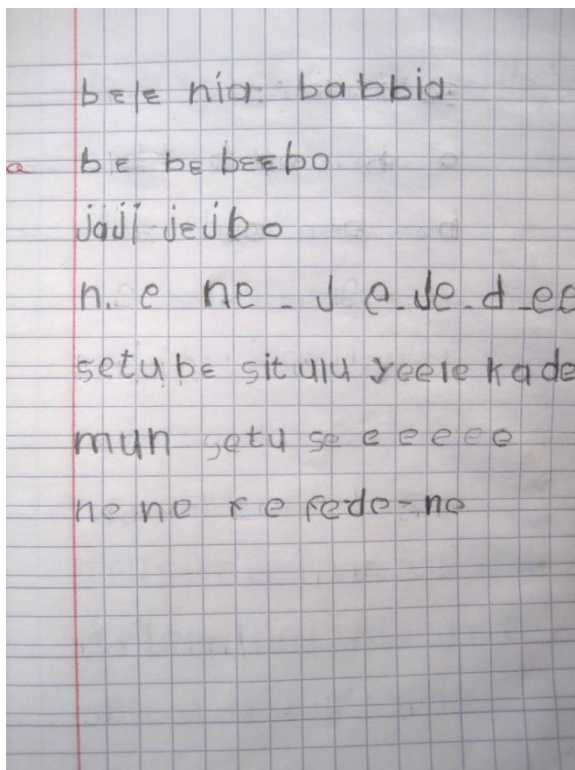 bɛlɛ nía babbia
bɛ bɛ bɛɛbo
jaji jɛjbo
n. e ne - J e-Je-d-ee
setu bɛ sit ulu yeele kade
mun setu se e e e e e
ne ne r e rede-ne